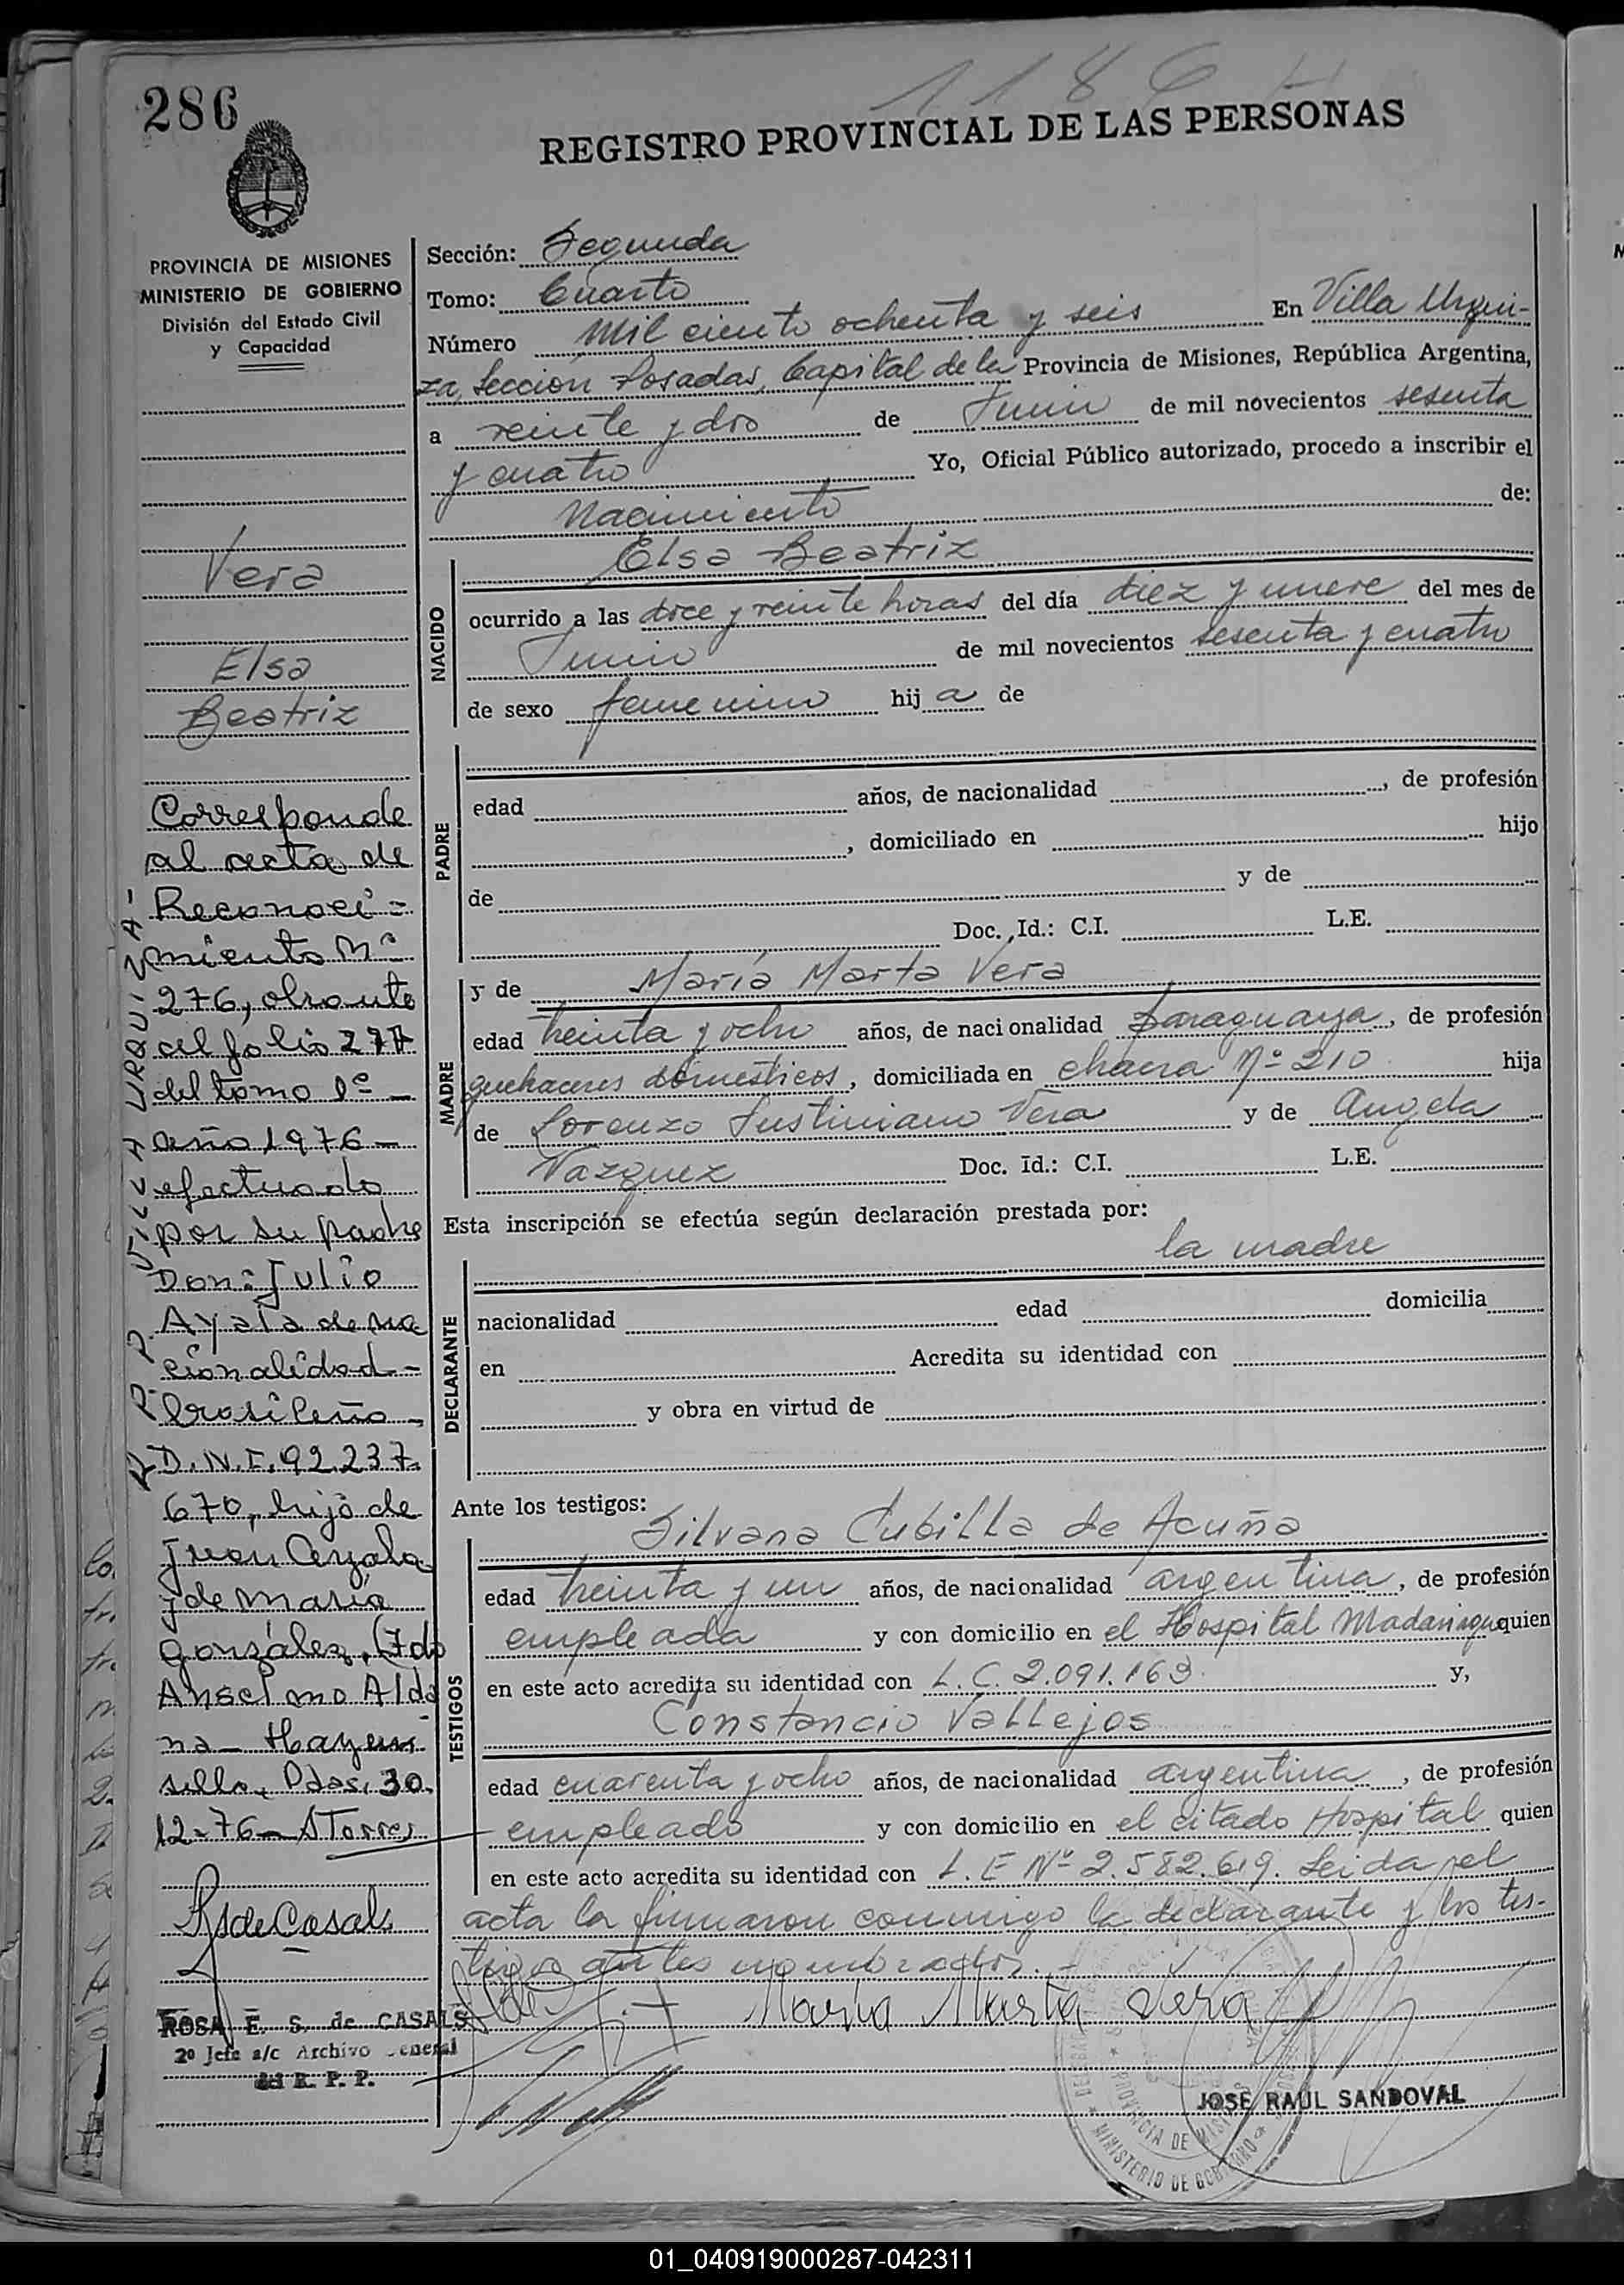 1186
286
REGISTRO PROVINCIAL DE LAS PERSONAS
PROVINCIA DE MISIONES
MINISTERIO DE GOBIERNO
División del Estado Civil
y Capacidad
Vera
Elsa
Beatriz
Corresponde
al acta de
Reconoci=
miento Nº
276, obrante
al folio 277
del tomo 1º
año 1976
efectuado
por su padre
Don: Julio
Ayala de na
cionalidad
brasileño
D.N.I. 92.237.
670, hijo de
Juan Ayala
y de María
González. (Fdo
Anselmo Alda
na
Pdas. 30.
12-76 - A Torres
RS de Casals
ROSA E. S. de CASALS
2º Jefe a/c Archivo General
del R. P. P.
VILLA URQUIZA
Sección: Segunda
Tomo: Cuarto
Número mil ciento ochenta y seis En Villa Urqui-
za, Sección Posadas, Capital de la Provincia de Misiones, República Argentina,
a veinte y dos de Junio de mil novecientos sesenta
y cuatro Yo, Oficial Público autorizado, procedo a inscribir el
Nacimiento de:
NACIDO
Elsa Beatriz
ocurrido a las doce y veinte horas del día diez y nueve del mes de
Junio de mil novecientos sesenta y cuatro
de sexo femenino hija de
PADRE
edad años, de nacionalidad , de profesión
, domiciliado en hijo
de y de
Doc. Id.: C.I. L.E.
MADRE
y de María Marta Vera
edad treinta y ocho años, de nacionalidad paraguaya, de profesión
quehaceres domésticos, domiciliada en chacra Nº 210 hija
de Lorenzo Justiniano Vera y de Angela
Vazquez Doc. Id.: C.I. L.E.
Esta inscripción se efectúa según declaración prestada por:
la madre
DECLARANTE
nacionalidad edad domicilia
en Acredita su identidad con
y obra en virtud de
Ante los testigos:
TESTIGOS
Silvana Cubilla de Acuña
edad treinta y un años, de nacionalidad argentina, de profesión
empleada y con domicilio en el Hospital Madariaga quien
en este acto acredita su identidad con L.C. 2.091.163 y,
Constancio Vallejos
edad cuarenta y ocho años, de nacionalidad argentina, de profesión
empleado y con domicilio en el citado Hospital quien
en este acto acredita su identidad con L.E Nº 2.582.619. Leida el
acta la firmaron conmigo la declarante y los tes-
tigos antes nombrados.-
María Marta Vera
JOSE RAUL SANDOVAL
PROVINCIA DE MISIONES
MINISTERIO DE GOBIERNO
01_040919000287-042311